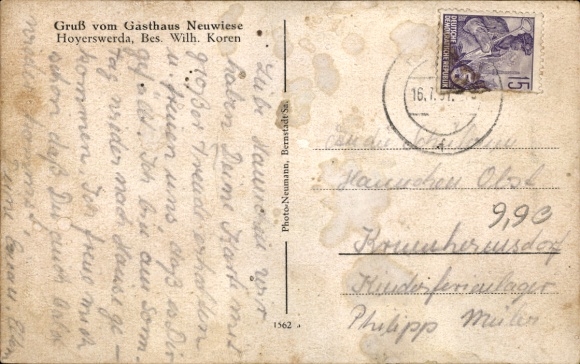 Gruß vom Gasthaus Neuwiese
Hoyerswerda, Bes. Wilh. Koren
Liebe Hannchen wir
haben Deine Karte mit
großer Freude erhalten
u. freuen uns daß es Dir
gefällt. Ich bin am Sonn-
tag wieder nach Hause ge-
kommen. Ich freue mich
schon daß Du auch
Photo-Neumann, Bernstadt-Sa.
1562
DEUTSCHE
DEMOKRATISCHE REPUBLIK
15
16.7.
An die
Hannchen Obst
9,90
Krumhermsdorf
Kinderferienlager
Philipp Müller